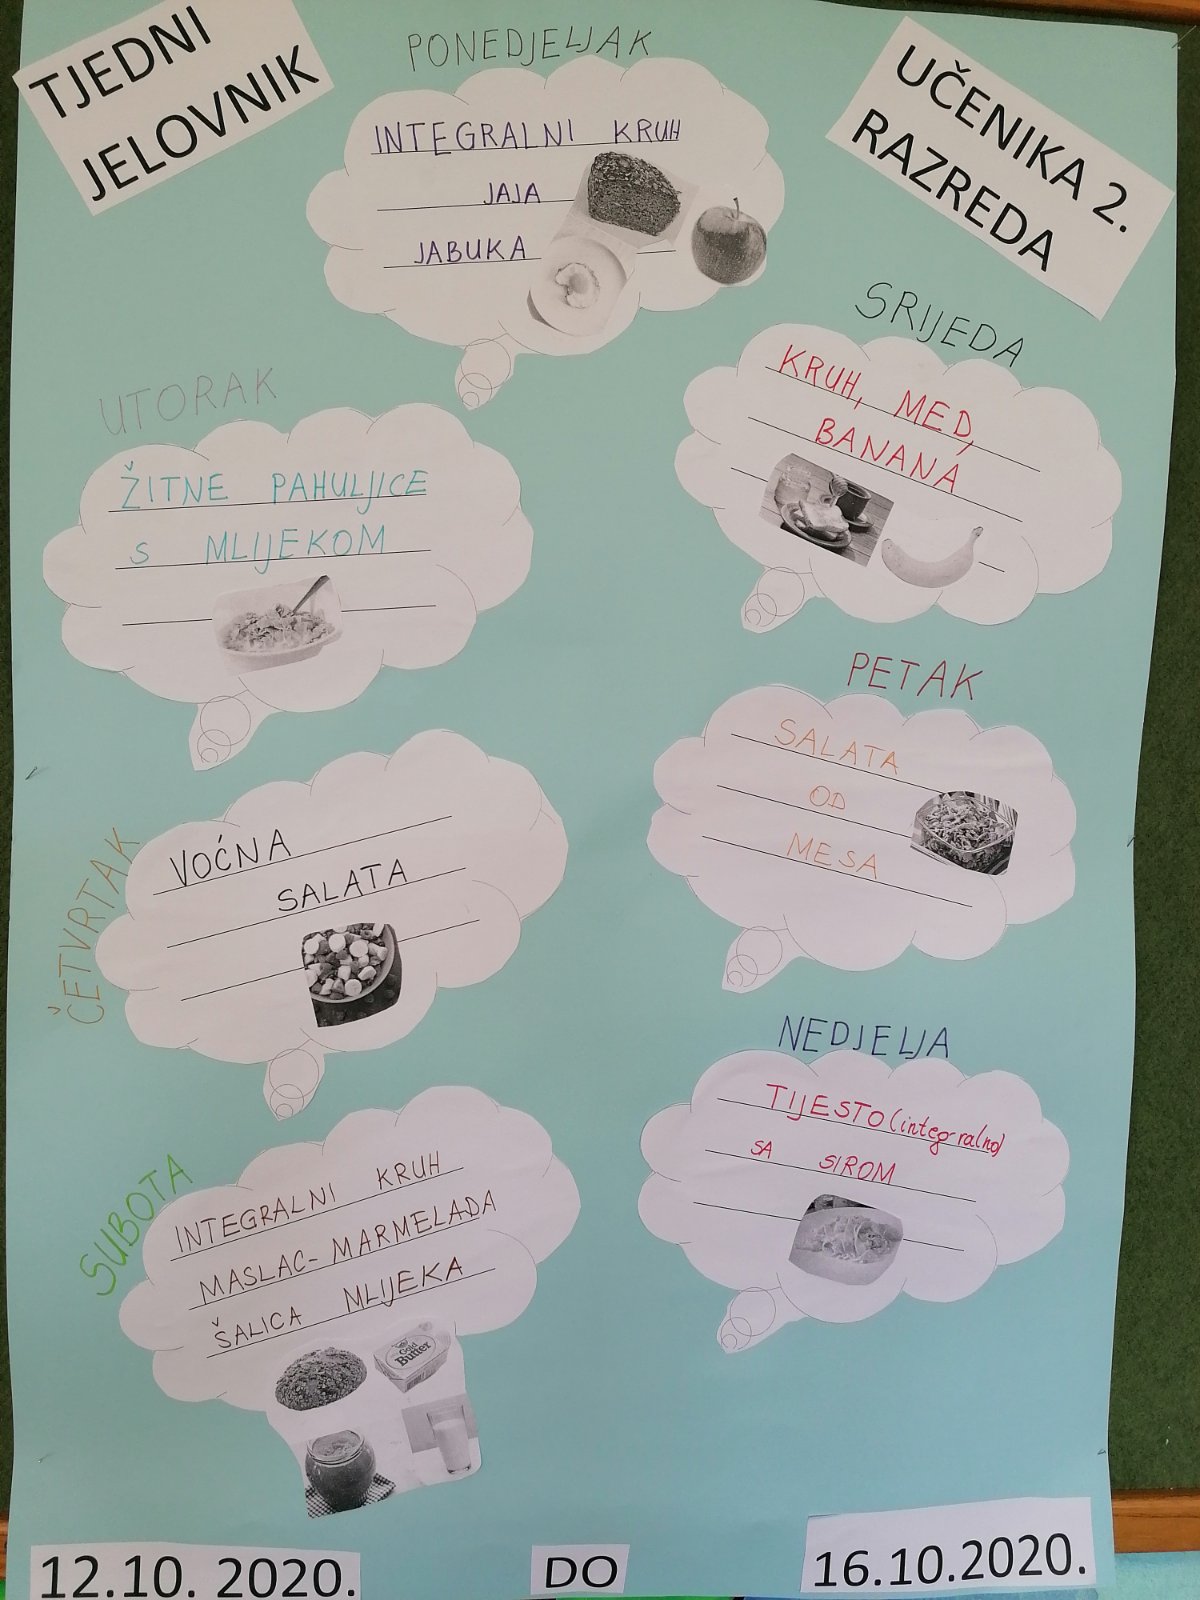 TJEDNI
JELOVNIK
UČENIKA 2.
RAZREDA
PONEDJELJAK
INTEGRALNI KRUH
JAJA
JABUKA
UTORAK
ŽITNE PAHULJICE
S MLIJEKOM
SRIJEDA
KRUH, MED,
BANANA
ČETVRTAK
VOĆNA
SALATA
PETAK
SALATA
OD
MESA
SUBOTA
INTEGRALNI KRUH
MASLAC-MARMELADA
ŠALICA MLIJEKA
Gold
Butter
NEDJELJA
TIJESTO (integralno)
SA SIROM
12.10. 2020. DO 16.10.2020.